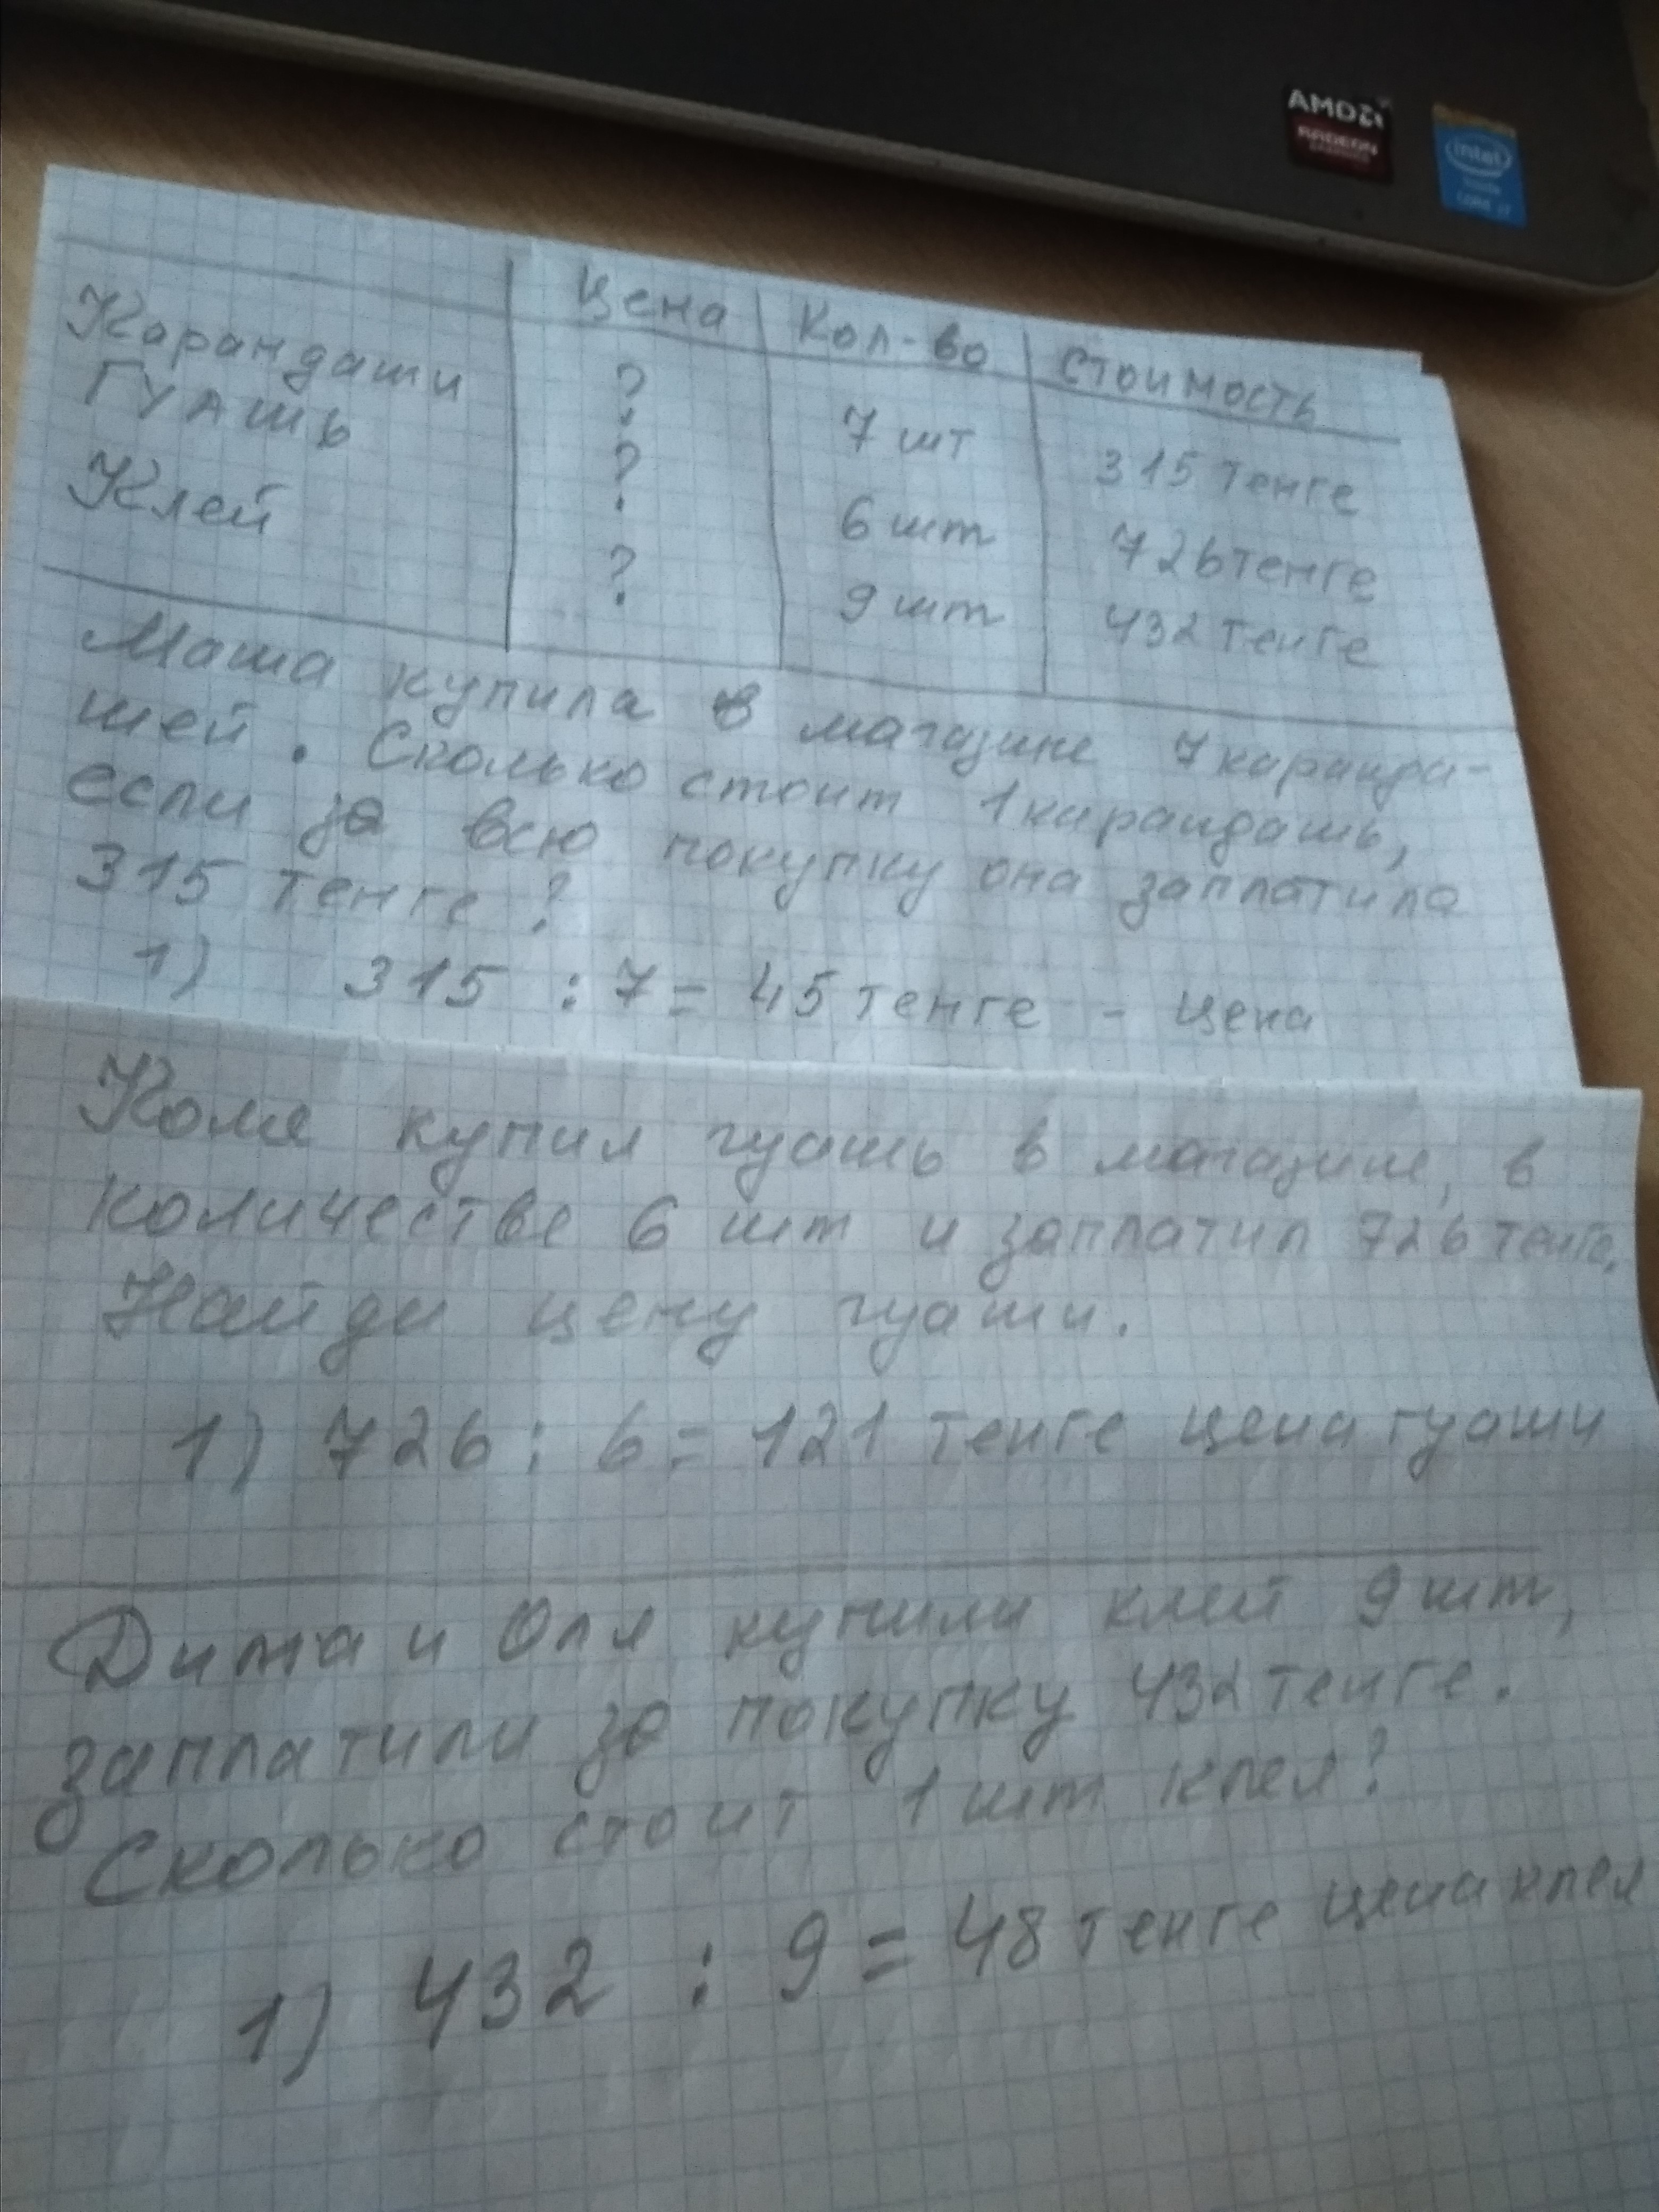 AMD
RADEON
GRAPHICS
intel
inside
CORE i7
Цена
Кол-во
Стоимость
Карандаши
?
7 шт
315 тенге
Гуашь
?
6 шт
726 тенге
Клей
?
9 шт
432 тенге
Маша купила в магазине 7 каранда-
шей. Сколько стоит 1 карандашь,
если за всю покупку она заплатила
315 тенге?
1) 315 : 7 = 45 тенге - цена
Коля купил гуашь в магазине, в
количестве 6 шт и заплатил 726 тенге.
Найди цену гуаши.
1) 726 : 6 = 121 тенге цена гуаши
Дима и Оля купили клей 9 шт,
заплатили за покупку 432 тенге.
Сколько стоит 1 шт клея?
1) 432 : 9 = 48 тенге цена клея